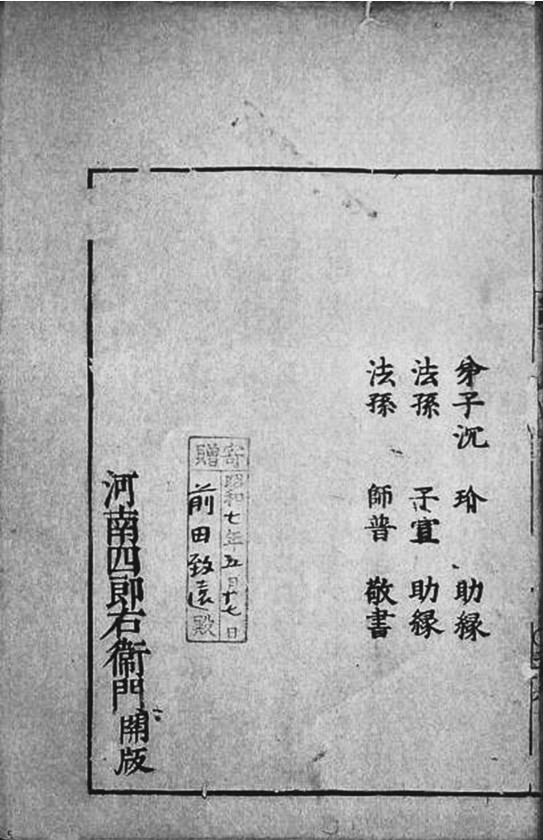 弟子沉 玠 助縁
法孫 子宣 助縁
法孫 師普 敬書
寄贈
昭和七年五月十七日
前田致遠殿
河南四郎右衞門開版